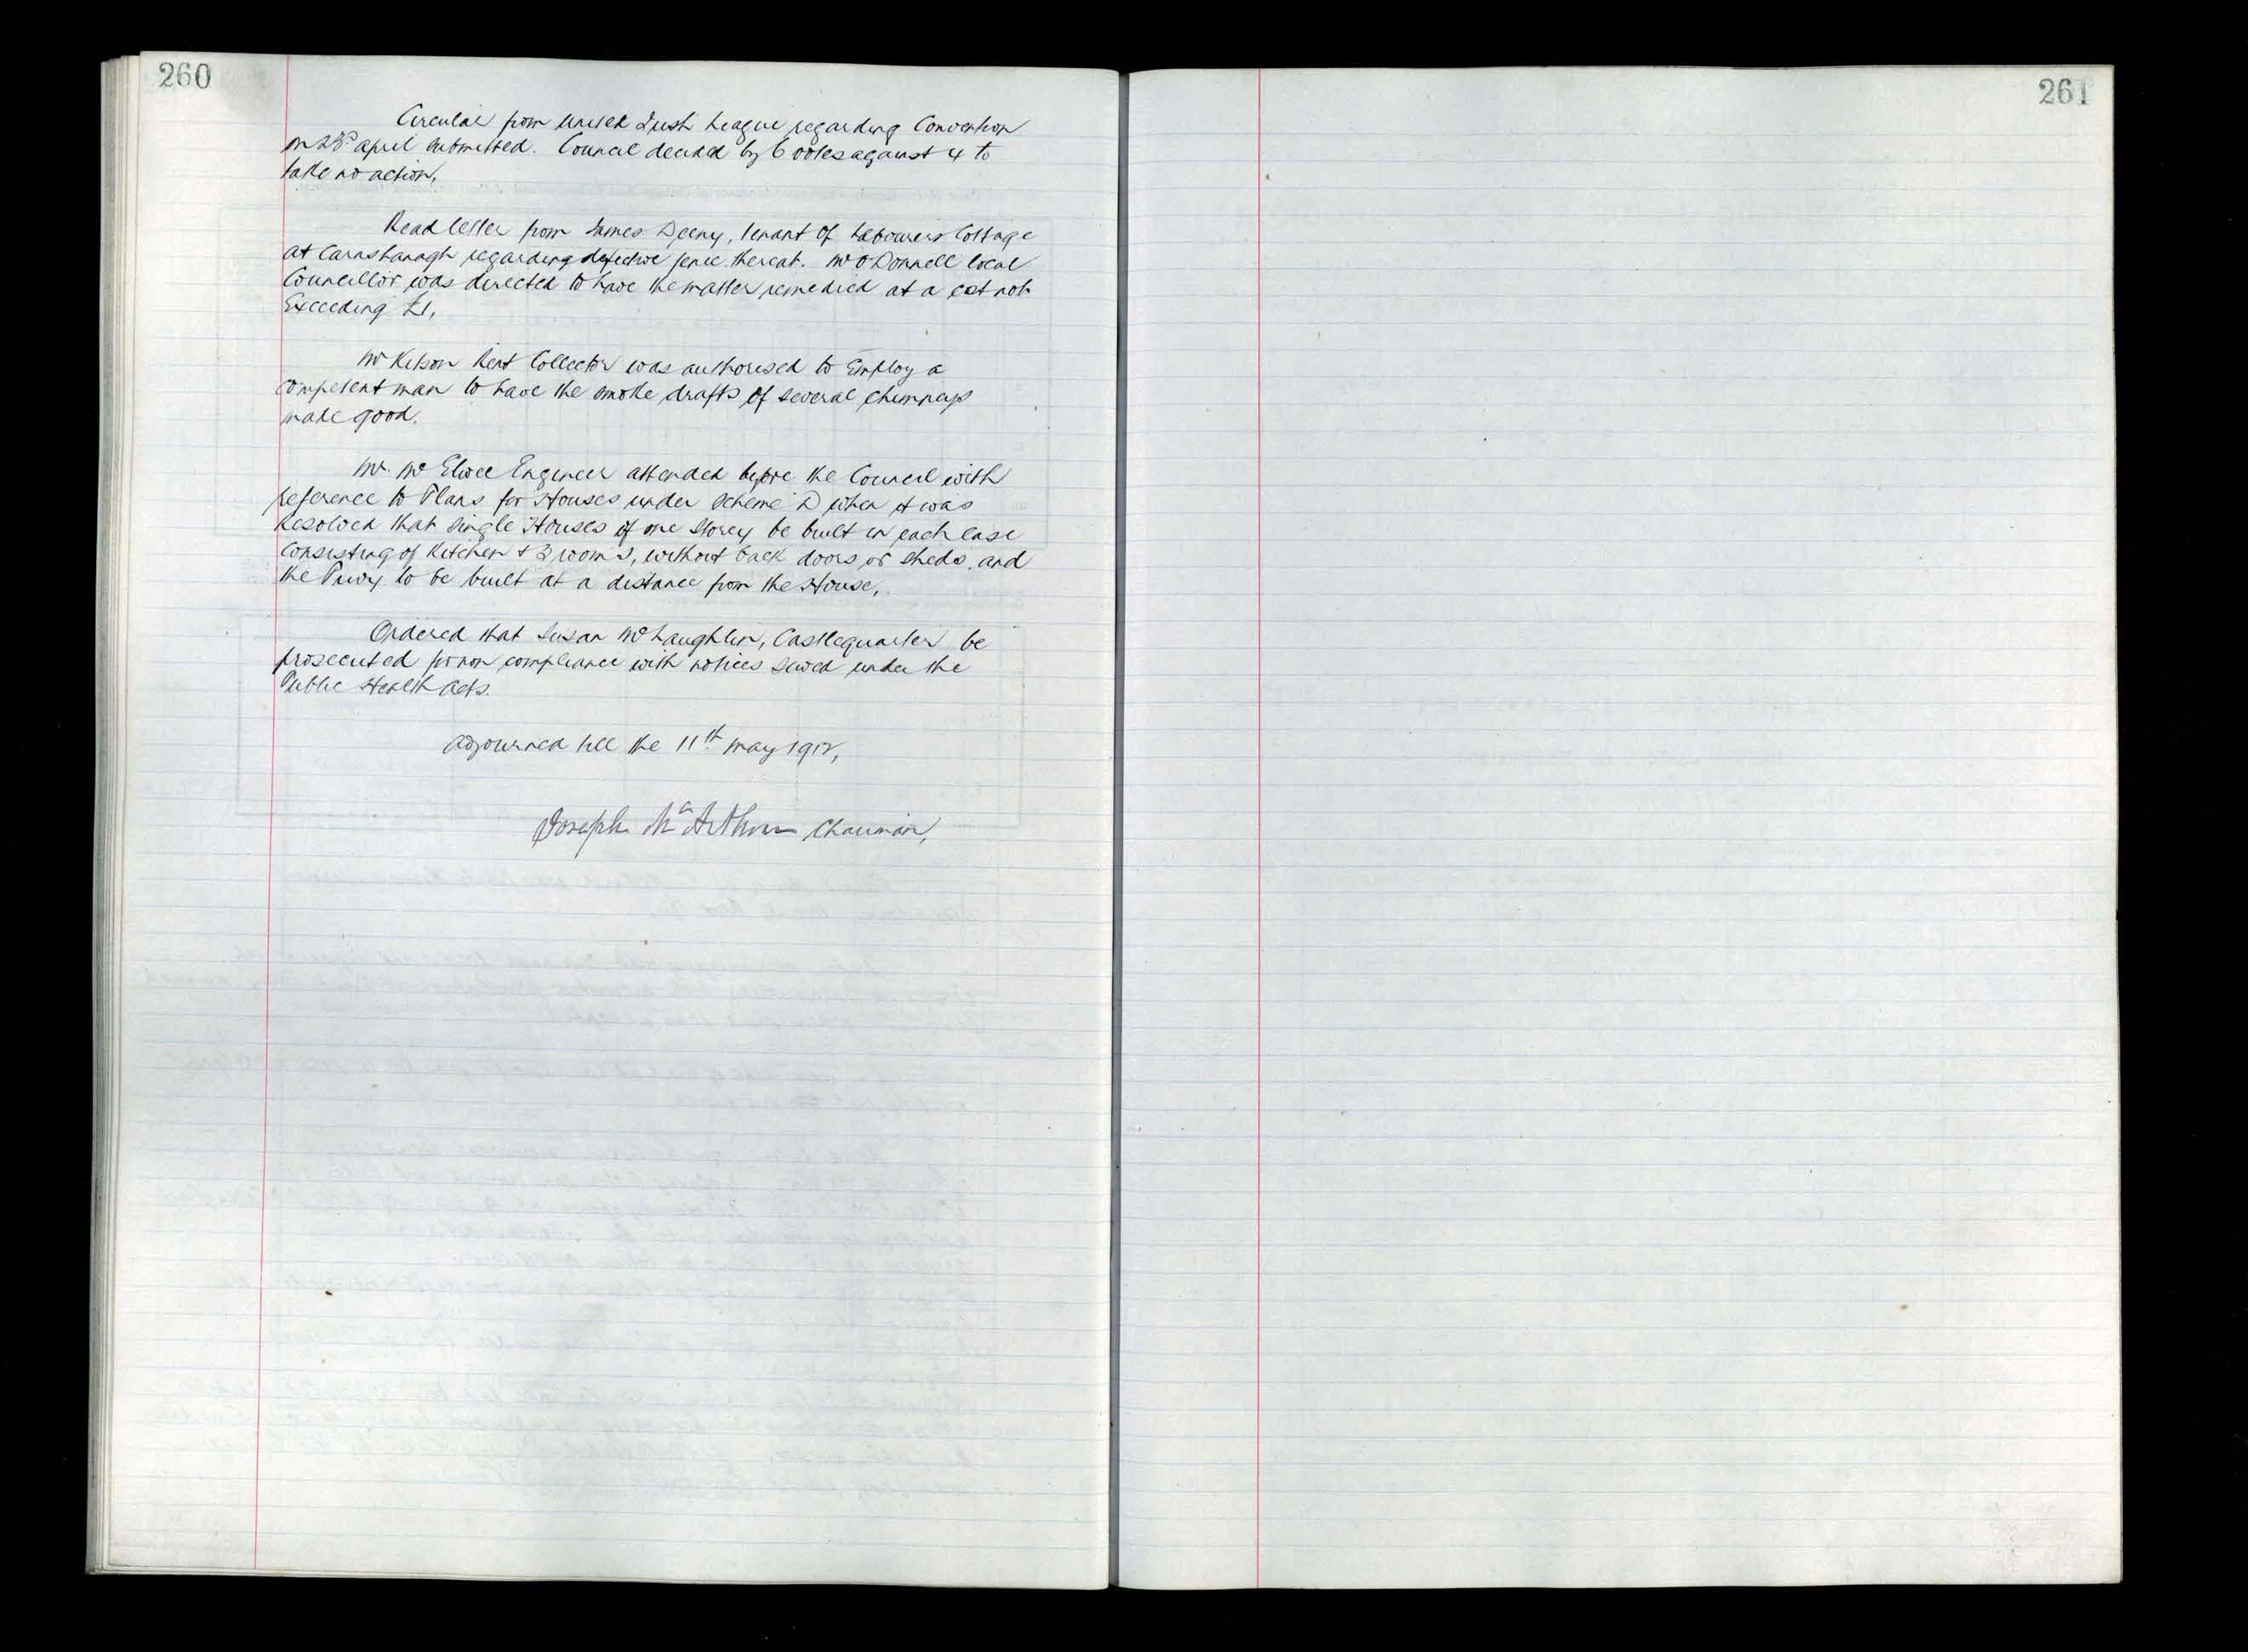 260
Circular from United Irish League regarding Convention
on 23rd April submitted. Council decided by 6 votes against 4 to
take no action,
Read letter from James Deeny, tenant of Labourers Cottage
at Carnshanagh regarding defective fence thereat. Mr O'Donnell local
Councillor was directed to have the matter remedied at a cost not
Exceeding £1,
Mr Kelson Rent Collector was authorised to Employ a
competent man to have the smoke drafts of several chimneys
made good.
Mr. McElwee Engineer attended before the Council with
reference to Plans for Houses under Scheme D when it was
Resolved that single Houses of one storey be built in each case
Consisting of Kitchen & 3 rooms, without back doors or sheds, and
the Privy to be built at a distance from the House,
Ordered that Susan McLaughlin, Castlequarter be
prosecuted for non compliance with notices served under the
Public Health Acts.
Adjourned till the 11th May 1912,
Joseph McArthur Chairman,
261